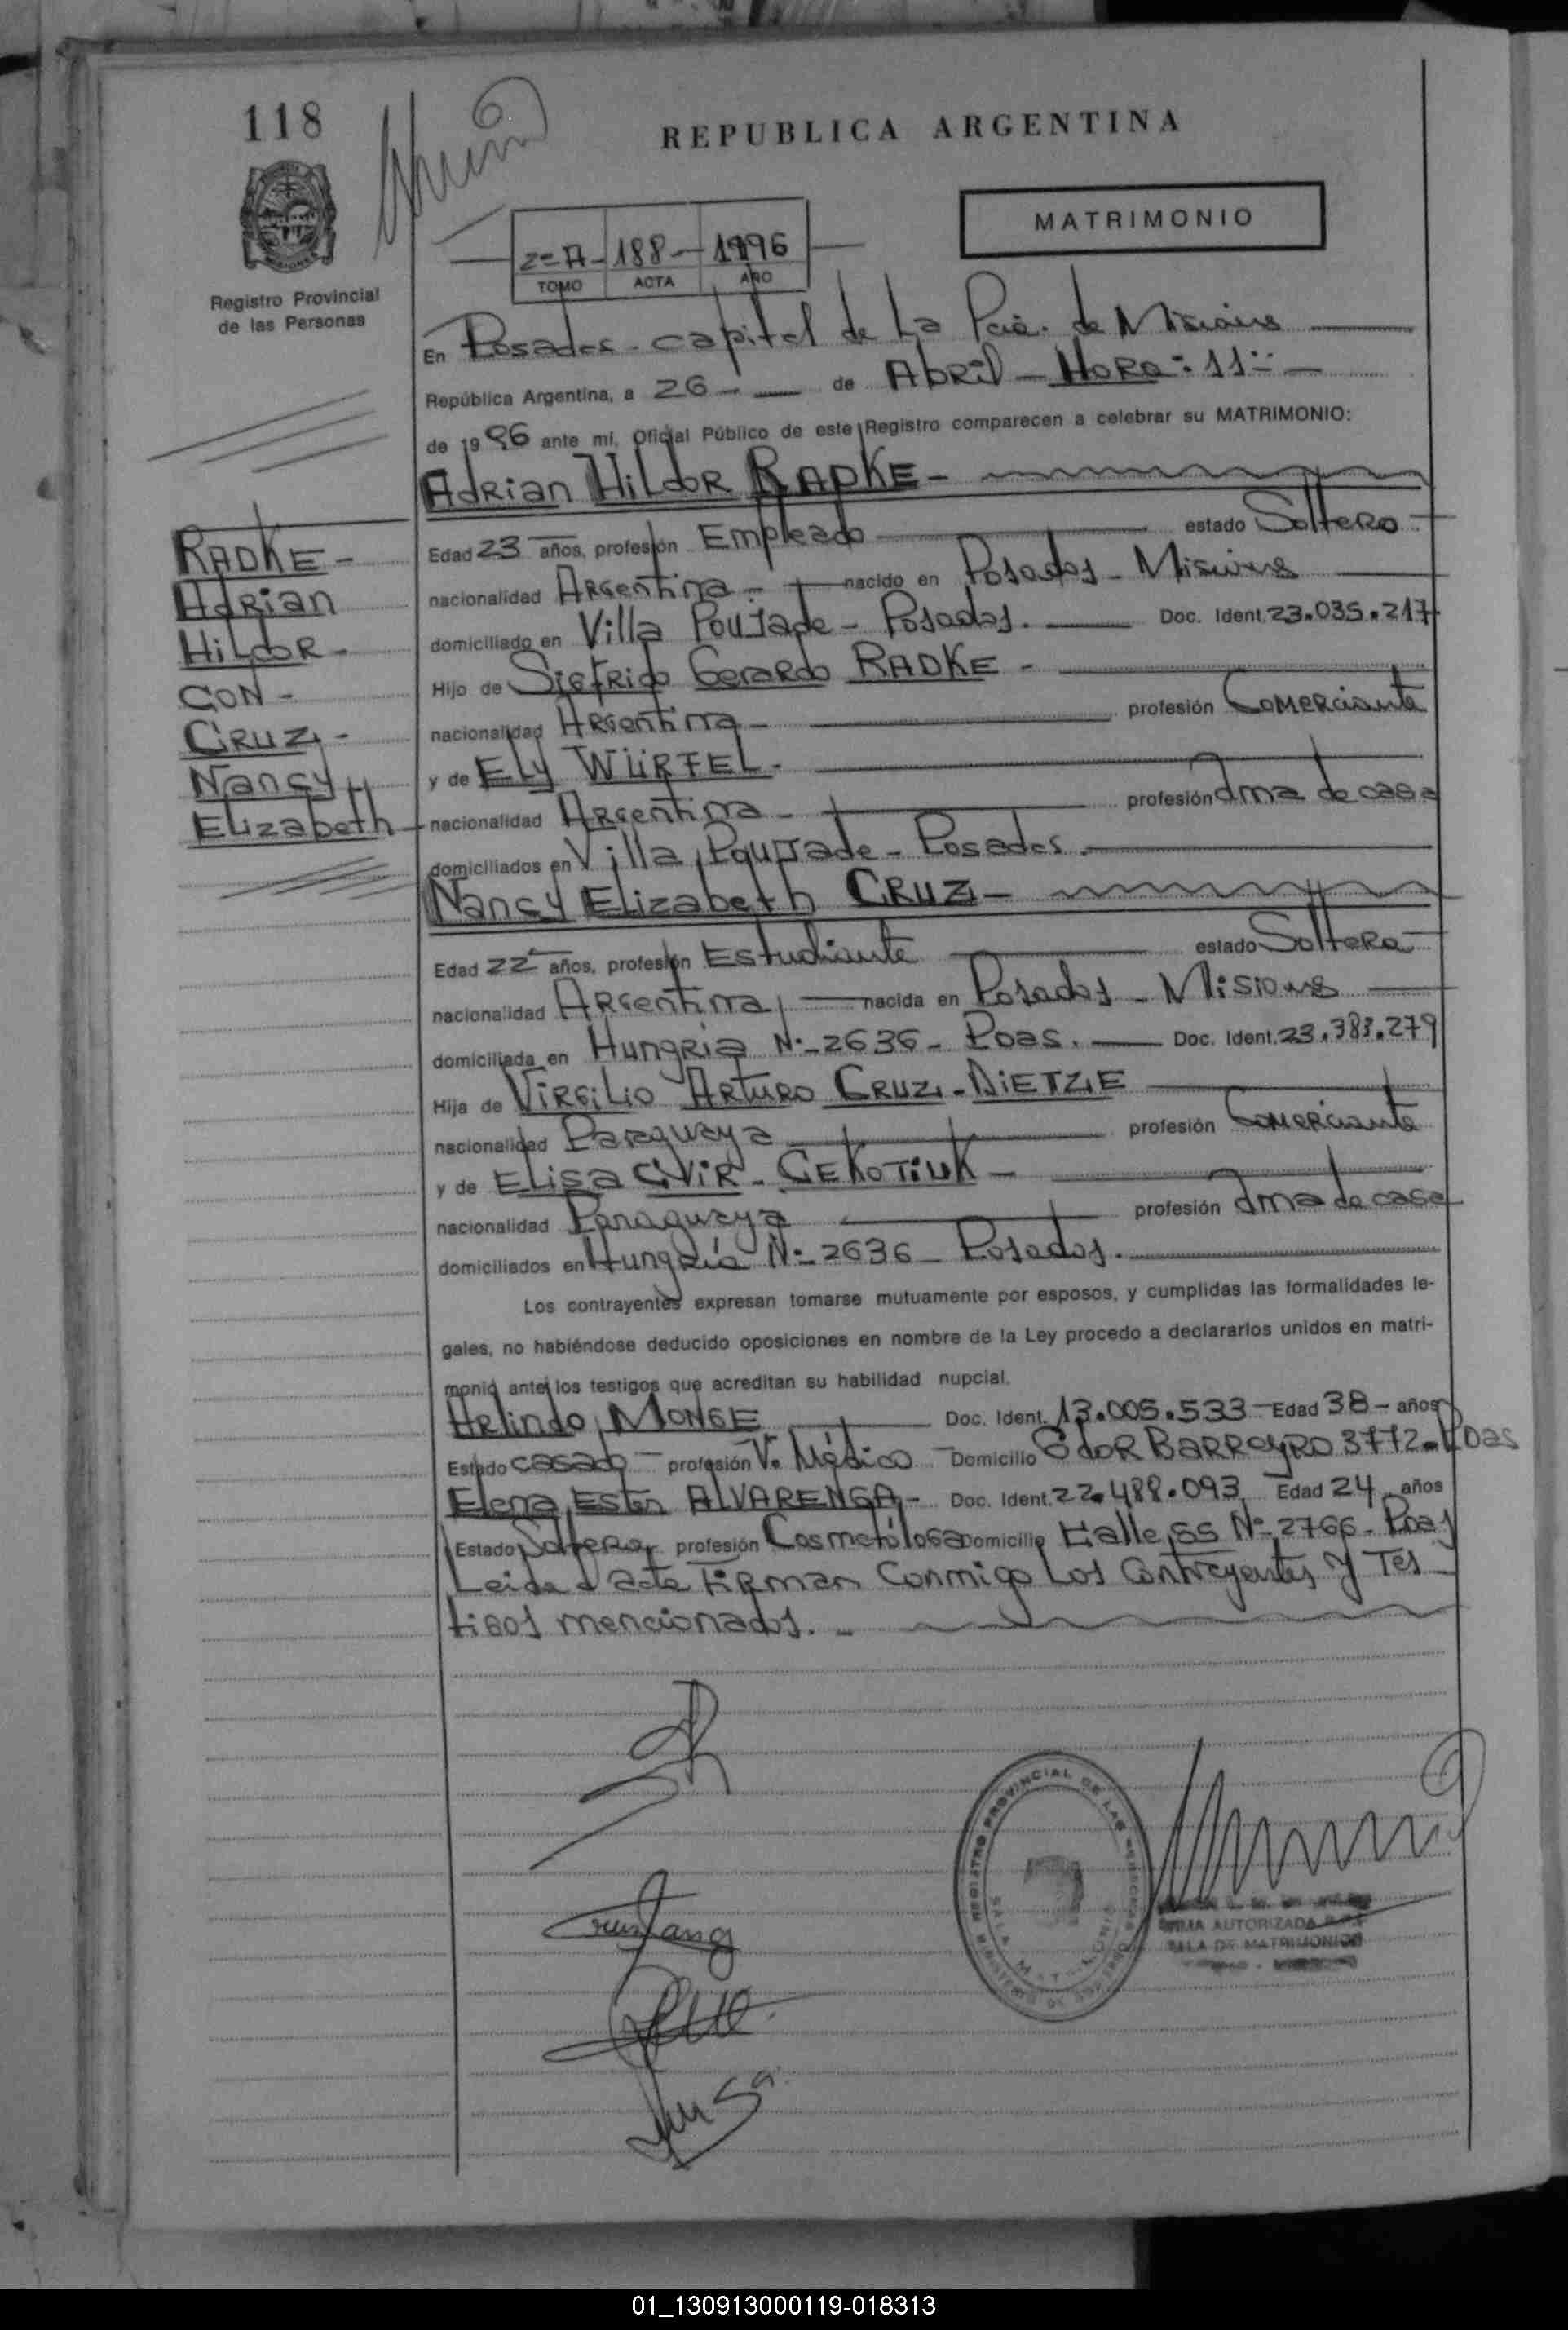 118
REPUBLICA ARGENTINA
MATRIMONIO
2=A - 188 - 1996
TOMO ACTA AÑO
Registro Provincial
de las Personas
En Posadas - capital de La Pcia. de Misiones
República Argentina, a 26 - de Abril - HORA: 11:-
de 1996 ante mí, Oficial Público de este Registro comparecen a celebrar su MATRIMONIO:
Adrian HiLdoR RADKE -
RADKE -
Adrian
HiLdoR -
CON -
CRUZ -
Nancy
Elizabeth -
Edad 23 años, profesión Empleado estado Soltero
nacionalidad Argentina - nacido en Posadas - Misiones
domiciliado en Villa Poujade - Posadas. Doc. Ident. 23.035.217
Hijo de Sigfrido Gerardo RADKE -
nacionalidad Argentina - profesión Comerciante
y de ELY WÜRFEL -
nacionalidad Argentina - profesión Ama de casa
domiciliados en Villa Poujade - Posadas.
Nancy Elizabeth CRUZ -
Edad 22 años, profesión Estudiante estado Soltera
nacionalidad Argentina nacida en Posadas - Misiones
domiciliada en Hungria N:- 2636 - Poas. Doc. Ident. 23.383.279
Hija de Virgilio Arturo CRUZ - DIETZE
nacionalidad Paraguaya profesión Comerciante
y de Elisa - GEKOTIUK -
nacionalidad Paraguaya profesión Ama de casa
domiciliados en Hungria N:- 2636 - Posadas.
Los contrayentes expresan tomarse mutuamente por esposos, y cumplidas las formalidades le-
gales, no habiéndose deducido oposiciones en nombre de la Ley procedo a declararlos unidos en matri-
monio ante los testigos que acreditan su habilidad nupcial.
Arlindo MONGE Doc. Ident. 13.005.533 - Edad 38 - años
Estado casado - profesión V. Médico - Domicilio GdoR BARREYRO 3772 - Poas
Elena Ester ALVARENGA - Doc. Ident. 22.488.093 Edad 24 años
Estado Soltera profesión Cosmetóloga Domicilio Calle 85 N:- 2766 - Poas
Leida el acta Firman Conmigo Los Contrayentes y Tes-
tigos mencionados. -
REGISTRO PROVINCIAL DE LAS PERSONAS
FIRMA AUTORIZADA
SALA DE MATRIMONIOS
01_130913000119-018313